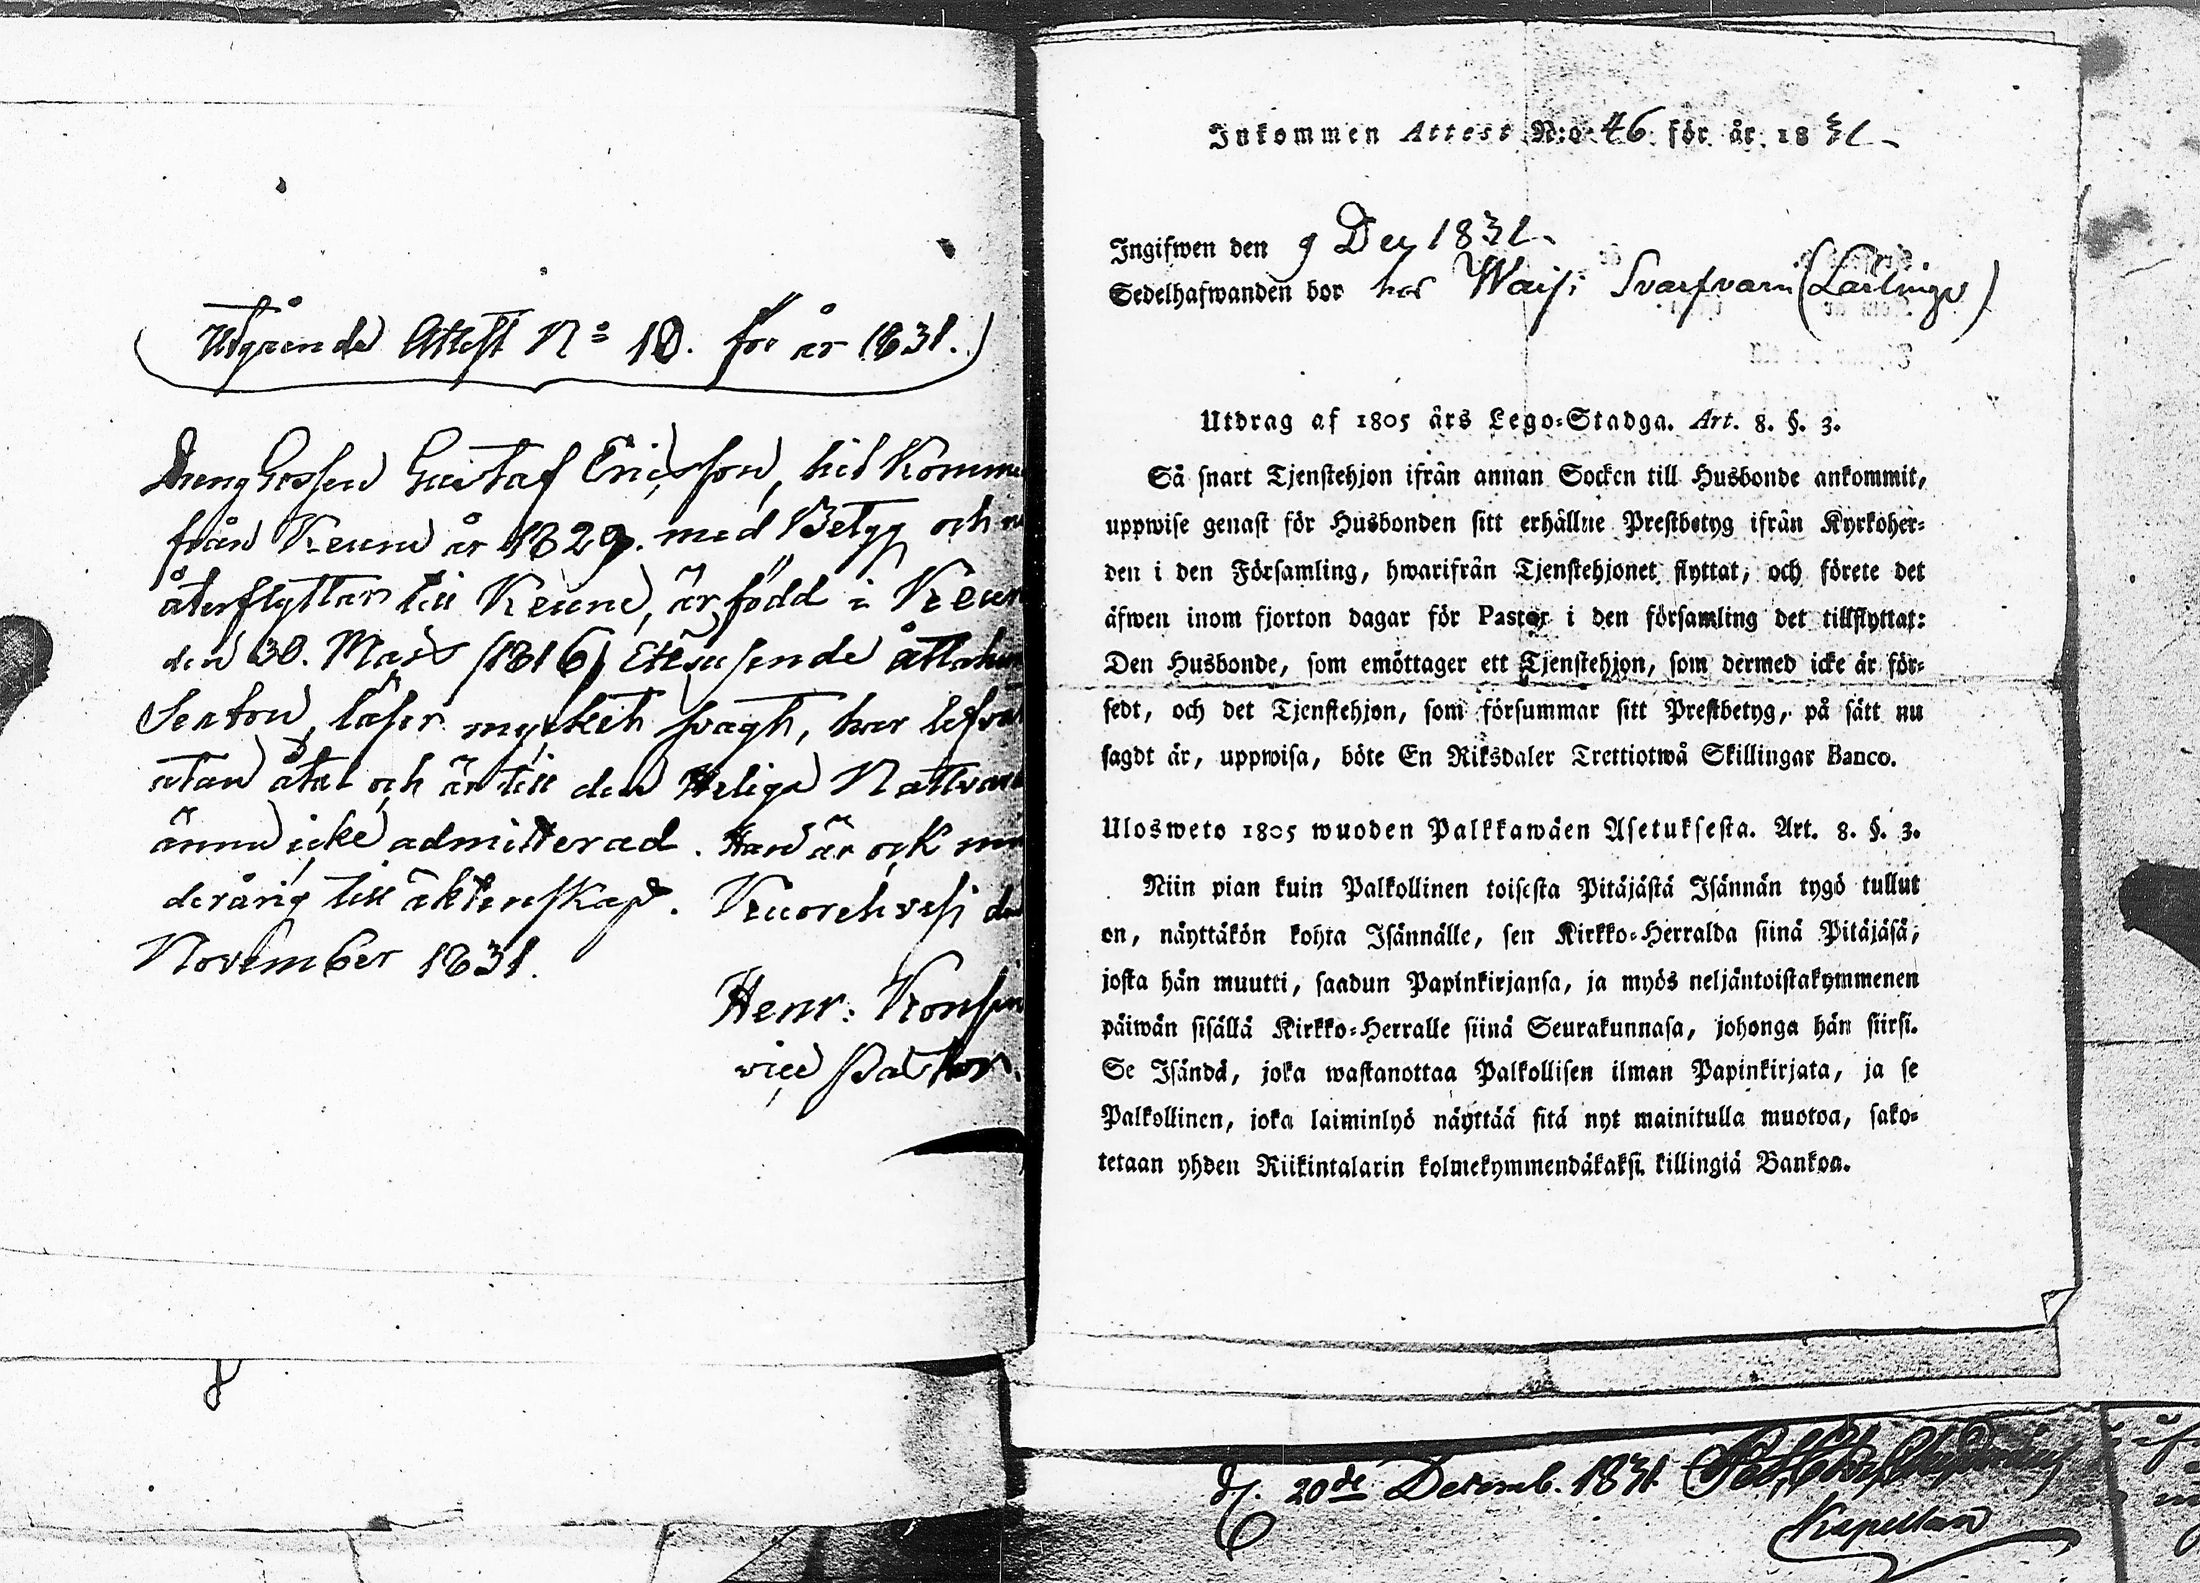 Utgående Attest No 10. för år 1831.
Drenggossen Gustaf Ericsson, hit Komme
från Keuru år 1829. med Betyg och n
återflyttar till Keuru, är född i Keur
den 30. Mars (1816) Ettusende åttahun
Sexton, läser mycket svagt, har lefvat
utan åtal och är till den Heliga Nattvar
ännu icke admitterad. Han är ock min
derårig till äktenskap. Kuorehvesi den
November 1831.
Henr:
vice Pastor.
Inkommen Attest N:o 46 för år 1831
Ingifwen den 9 Dec 1831
Sedelhafwanden bor hos Svarfvarn (Lärling)
Utdrag af 1805 års Lego=Stadga. Art. 8. §. 3.
Så snart Tjenstehjon ifrån annan Socken till Husbonde ankommit,
uppwise genast för Husbonden sitt erhållne Prestbetyg ifrån Kyrkoher=
den i den Församling, hwarifrån Tjenstehjonet flyttat, och förete det
äfwen inom fjorton dagar för Pastor i den församling det tillflyttat:
Den Husbonde, som emottager ett Tjenstehjon, som dermed icke är för=
sedt, och det Tjenstehjon, som försummar sitt Prestbetyg, på sätt nu
sagdt är, uppwisa, böte En Riksdaler Trettiotwå Skillingar Banco.
Ulosweto 1805 wuoden Palkkawäen Asetuksesta. Art. 8. §. 3.
Niin pian kuin Palkollinen toisesta Pitäjästä Isännän tygö tullut
on, näyttäkön kohta Isännälle, sen Kirkko=Herralda siinä Pitäjäsä,
josta hän muutti, saadun Papinkirjansa, ja myös neljäntoistakymmenen
päiwän sisällä Kirkko=Herralle siinä Seurakunnasa, johonga hän siirsi.
Se Isändä, joka wastanottaa Palkollisen ilman Papinkirjata, ja se
Palkollinen, joka laiminlyö näyttää sitä nyt mainitulla muotoa, sako=
tetaan yhden Riikintalarin kolmekymmendäkaksi killingiä Bankoa.
d. 20de Decemb. 1831
Kapellan